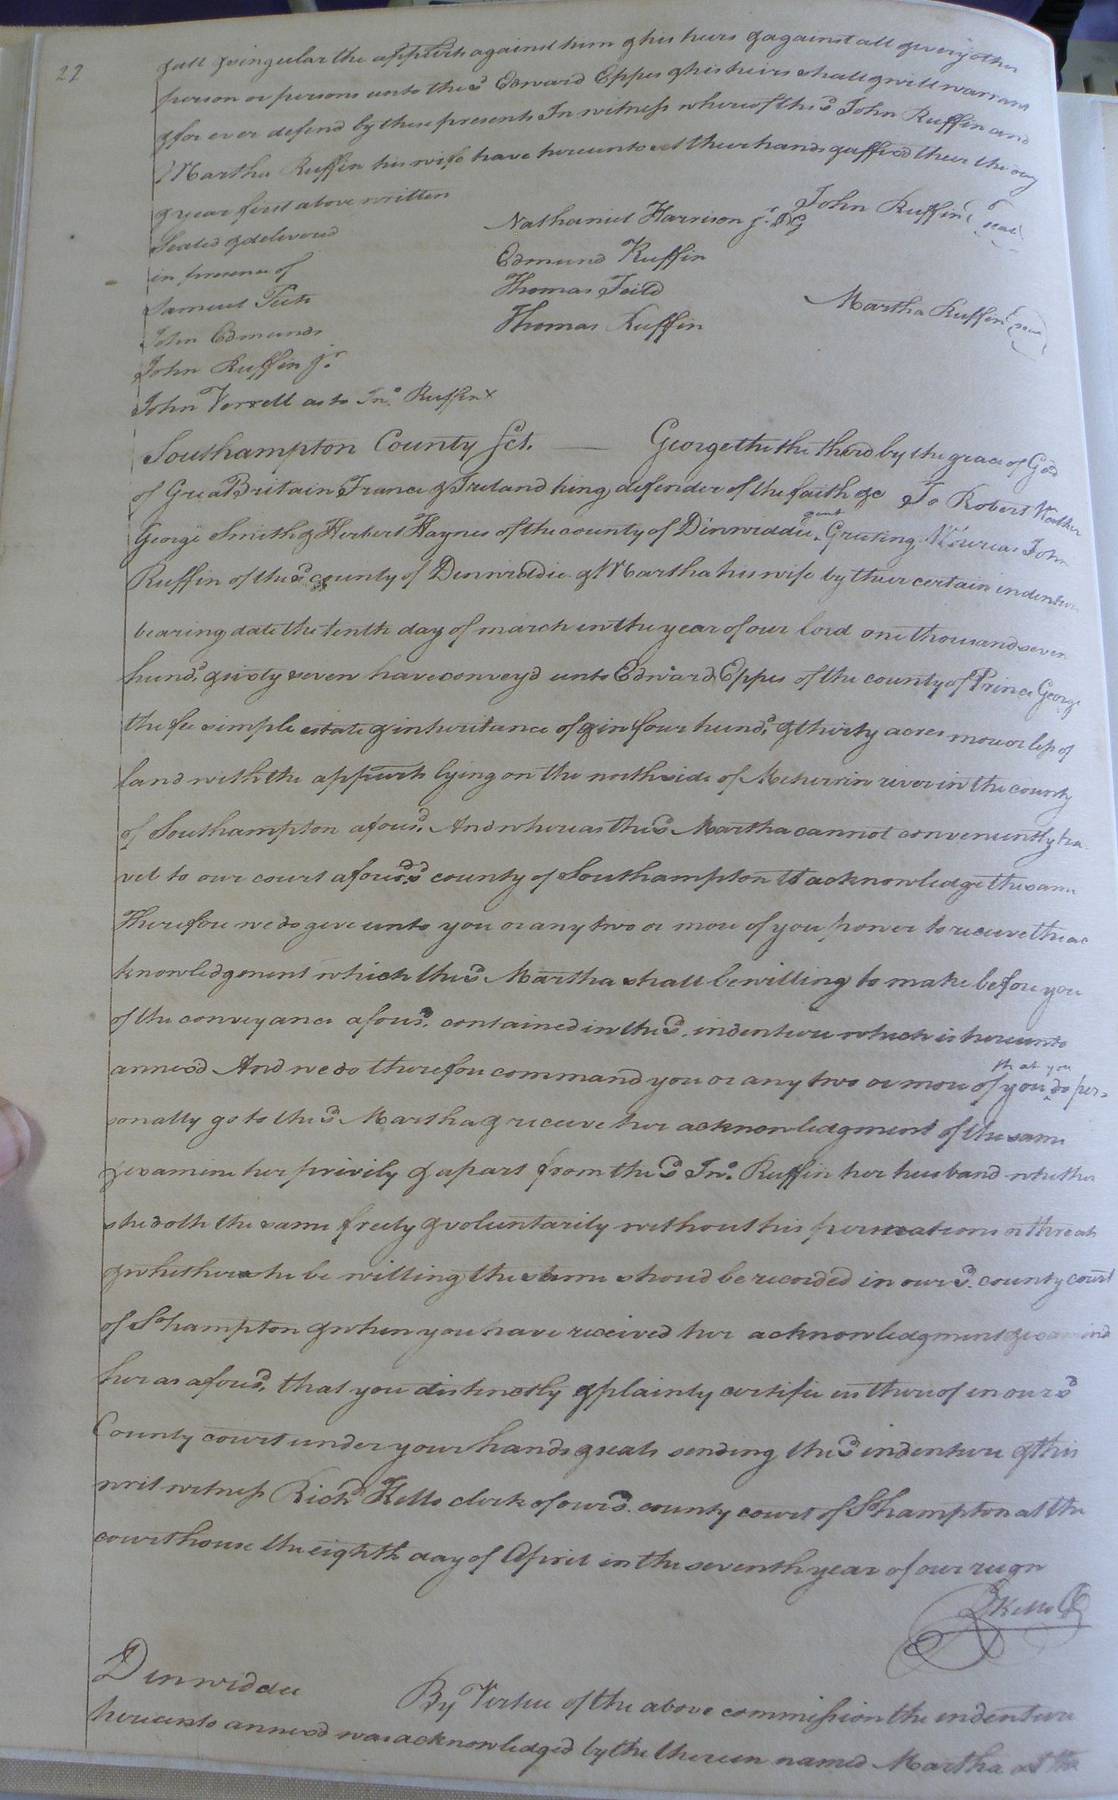 22
& all & singular the appurts against him & his heirs & against all & every other
person or persons unto the sd Edward Eppes & his heirs shall & will warrant
& for ever defend by these presents In witness whereof the sd John Ruffin and
Martha Ruffin his wife have hereunto set their hands & affixed their the day
& year first above written
Sealed & delivered
in presence of
Samuel Peete
John Edmunds
John Ruffin jr.
John Verrell as to Jno. Ruffin x
Nathaniel Harrison jr. PG
Edmund Ruffin
Thomas Feild
Thomas Ruffin
John Ruffin (seal)
Martha Ruffin (seal)
Southampton County Sct. — George the the third by the grace of God
of Great Britain France & Ireland king, defender of the faith &c To Robert Walker
George Smith & Herbert Haynes of the county of Dinwiddie gent Greeting Whereas John
Ruffin of the sd county of Dinwiddie & Martha his wife by their certain indenture
bearing date the tenth day of march in the year of our lord one thousand seven
hund.d & sixty seven have convey'd unto Edward Eppes of the county of Prince George
the fee simple estate & inheritance of & in four hund.d & thirty acres more or less of
land with the appurts lying on the north side of Meherrin river in the county
of Southampton afores.d And whereas the sd Martha cannot conveniently tra
vel to our court afores.d sd county of Southampton to acknowledge the same
Therefore we do give unto you or any two or more of you power to receive the ac
knowledgement which the sd Martha shall be willing to make before you
of the conveyance afores.d contained in the sd. indenture which is hereunto
annexd And we do therefore command you or any two or more of you that you do per=
sonally go to the sd Martha & receive her acknowledgment of the same
& examine her privily & apart from the sd Jno. Ruffin her husband whether
she doth the same freely & voluntarily without his persuations or threats
& whether she be willing the same shoud be recorded in our sd. county court
of Sohampton & when you have received her acknowledgment & examind
her as afores.d that you distinctly & plainly certifie us thereof in our sd
County court under your hands & seals sending the sd indenture & this
writ witness Richd Kello clerk of our sd. county court of Sohampton at the
courthouse the eighth day of April in the seventh year of our reign
R Kello C
Dinwiddie By Virtue of the above commission the indenture
hereunto annexd was acknowledged by the therein named Martha